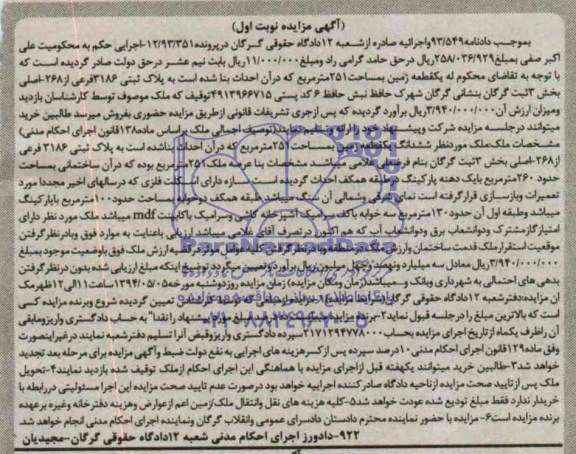 (آگهی مزایده نوبت اول)
بموجب دادنامه ۹۳/۵۴۹واجرائیه صادره ازشعبه ۱۲دادگاه حقوقی گرگان درپرونده۱۲/۹۳/۳۵۱-اجرایی حکم به محکومیت علی
اکبر صفی بمبلغ۲۵۸/۰۳۶/۹۲۹ریال درحق حامد گرامی راد ومبلغ۱۱/۰۰۰/۰۰۰ریال بابت نیم عشر درحق دولت صادر گردیده است که
با توجه به تقاضای محکوم له یکقطعه زمین بمساحت۲۵۱مترمربع که درآن احداث بنا شده است به پلاک ثبتی ۳۱۸۶فرعی از۲۶۸-اصلی
بخش ۳ثبت گرگان بنشانی گرگان شهرک حافظ نبش حافظ ۶ کد پستی ۴۹۱۳۹۶۶۷۱۵توقیف که ملک موصوف توسط کارشناسان بازدید
ومیزان ارزش آن۳/۹۴۰/۰۰۰/۰۰۰ریال برآورد گردیده که پس ازجری تشریفات قانونی ازطریق مزایده حضوری بفروش میرسد طالبین خرید
میتوانند درجلسه مزایده شرکت وپیشنهاد خود را ارائه وتسلیم نمایند(توصیف اجمالی ملک براساس ماده۱۳۸قانون اجرای احکام مدنی)
مشخصات ملک ملک موردنظر ششدانگ یکقطعه زمین بمساحت ۲۵۱مترمربع که درآن احداث بناشده است به پلاک ثبتی ۳۱۸۶ فرعی
از۲۶۸-اصلی بخش ۳ثبت گرگان بنام غلامی میباشد مشخصات بنا عرصه ملک۲۵۱مترمربع بوده که درآن ساختمانی بمساحت
حدود ۲۶۰مترمربع بایک دهنه پارکینگ درطبقه همکف احداث گردیده است سازه دارای اسکلت فلزی که درسالهای اخیر مجددا مورد
تعمیرات وبازسازی قرارگرفته است نمای شرقی وشمالی آن سنگ میباشد طبقه همکف دوخوابه بمساحت حدود۱۰۰مترمربع باپارکینگ
میباشد وطبقه اول آن حدود۱۳۰مترمربع سه خوابه باکف سرامیک آشپزخانه کاشی وسرامیک باکابینت mdf میباشد ملک مورد نظر دارای
امتیاز گازمشترک ودوانشعاب برق ودوانشعاب آب که هم اکنون درتصرف آقای غلامی میباشد ارزیابی باعنایت به موارد فوق وبادرنظرگرفتن
موقعیت استقرارملک قدمت ساختمان وارزش ملک درمنطقه وبادرنظرگرفتن کلیه عوامل موثر درقضیه ارزش ملک فوق باوضعیت موجود بمبلغ
۳/۹۴۰/۰۰۰/۰۰۰ریال معادل سه میلیارد ونهصد وچهل میلیون ریال برآورد وتعیین میگردد توضیح اینکه مبلغ ارزیابی شده بدون درنظرگرفتن
بدهی های احتمالی به شهرداری وبانک و...میباشد(زمان ومکان مزایده) زمان مزایده روزدوشنبه مورخه۱۳۹۴/۰۵/۰۵ساعت۱۱الی۱۲ظهرمک
ان مزایده:دفترشعبه ۱۲دادگاه حقوقی گرگان تعیین گردیده شروع وبرنده مزایده کسی
است که بالاترین مبلغ را درجلسه قبول نماید۲-برنده پیشنهاد را نقدا" به حساب دادگستری واریزومابقی
آن راظرف یکماه ازتاریخ اجرای مزایده بحساب۲۱۷۱۲۹۴۷۷۸۰۰۰سپرده دادگستری واریزوقبض آنرا تسلیم دفترشعبه نمایند درغیراینصورت
وفق ماده۱۲۹قانون اجرای احکام مدنی۱۰درصد سپرده پس از کسرهزینه های اجرایی به نفع دولت ضبط وآگهی مزایده برای مرحله بعد تجدید
خواهد شد۳-طالبین خرید میتوانند یکهفته قبل ازاجرای مزایده با هماهنگی این اجرای احکام ازملک توقیف شده بازدید نمایند۴-تحویل
ملک پس ازتایید صحت مزایده ازناحیه دادگاه صادرکننده اجراییه خواهد بود درصورت عدم تایید صحت مزایده این اجرا مسئولیتی دررابطه با
خریدار ندارد فقط مبلغ تودیع شده عودت خواهد شد۵-کلیه هزینه های نقل وانتقال ملک/زمین اعم ازعوارض وهزینه دفترخانه وغیره برعهده
برنده مزایده است۶-مزایده با حضور نماینده محترم دادستان دادسرای عمومی وانقلاب گرگان ونماینده اجرای احکام مدنی انجام خواهد شد.
۹۲۲-دادورز اجرای احکام مدنی شعبه ۱۲دادگاه حقوقی گرگان-مجیدیان